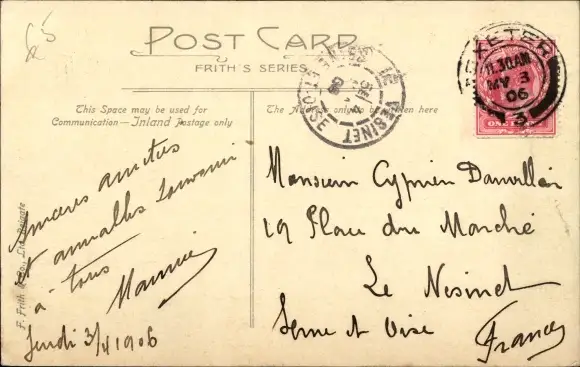 POST CARD
FRITH'S SERIES
This Space may be used for
Communication—Inland Postage only
The Address only to be written here
EXETER
11.30AM
MY 3
06
3
LE VESINET
SEINE ET OISE
ONE
Sincères amitiés
et aimables souvenir
à tous
Jeudi 3/4 1906
Monsieur Cyprien
19 Place du Marché
Le Vesinet
Seine et Oise
France
F. Frith & Co., Ltd. Reigate